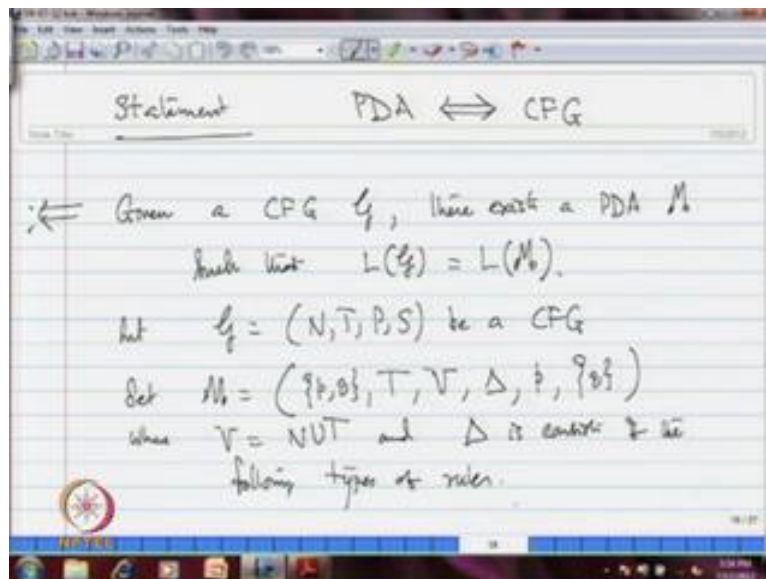 Statement PDA ⟺ CFG
:⟸ Given a CFG G, there exists a PDA M
Such that L(G) = L(M).
Let G = (N, T, P, S) be a CFG
Set M = ({p,q}, T, V, Δ, p, {q})
where V = N∪T and Δ is consists of the
following types of rules.
NPTEL